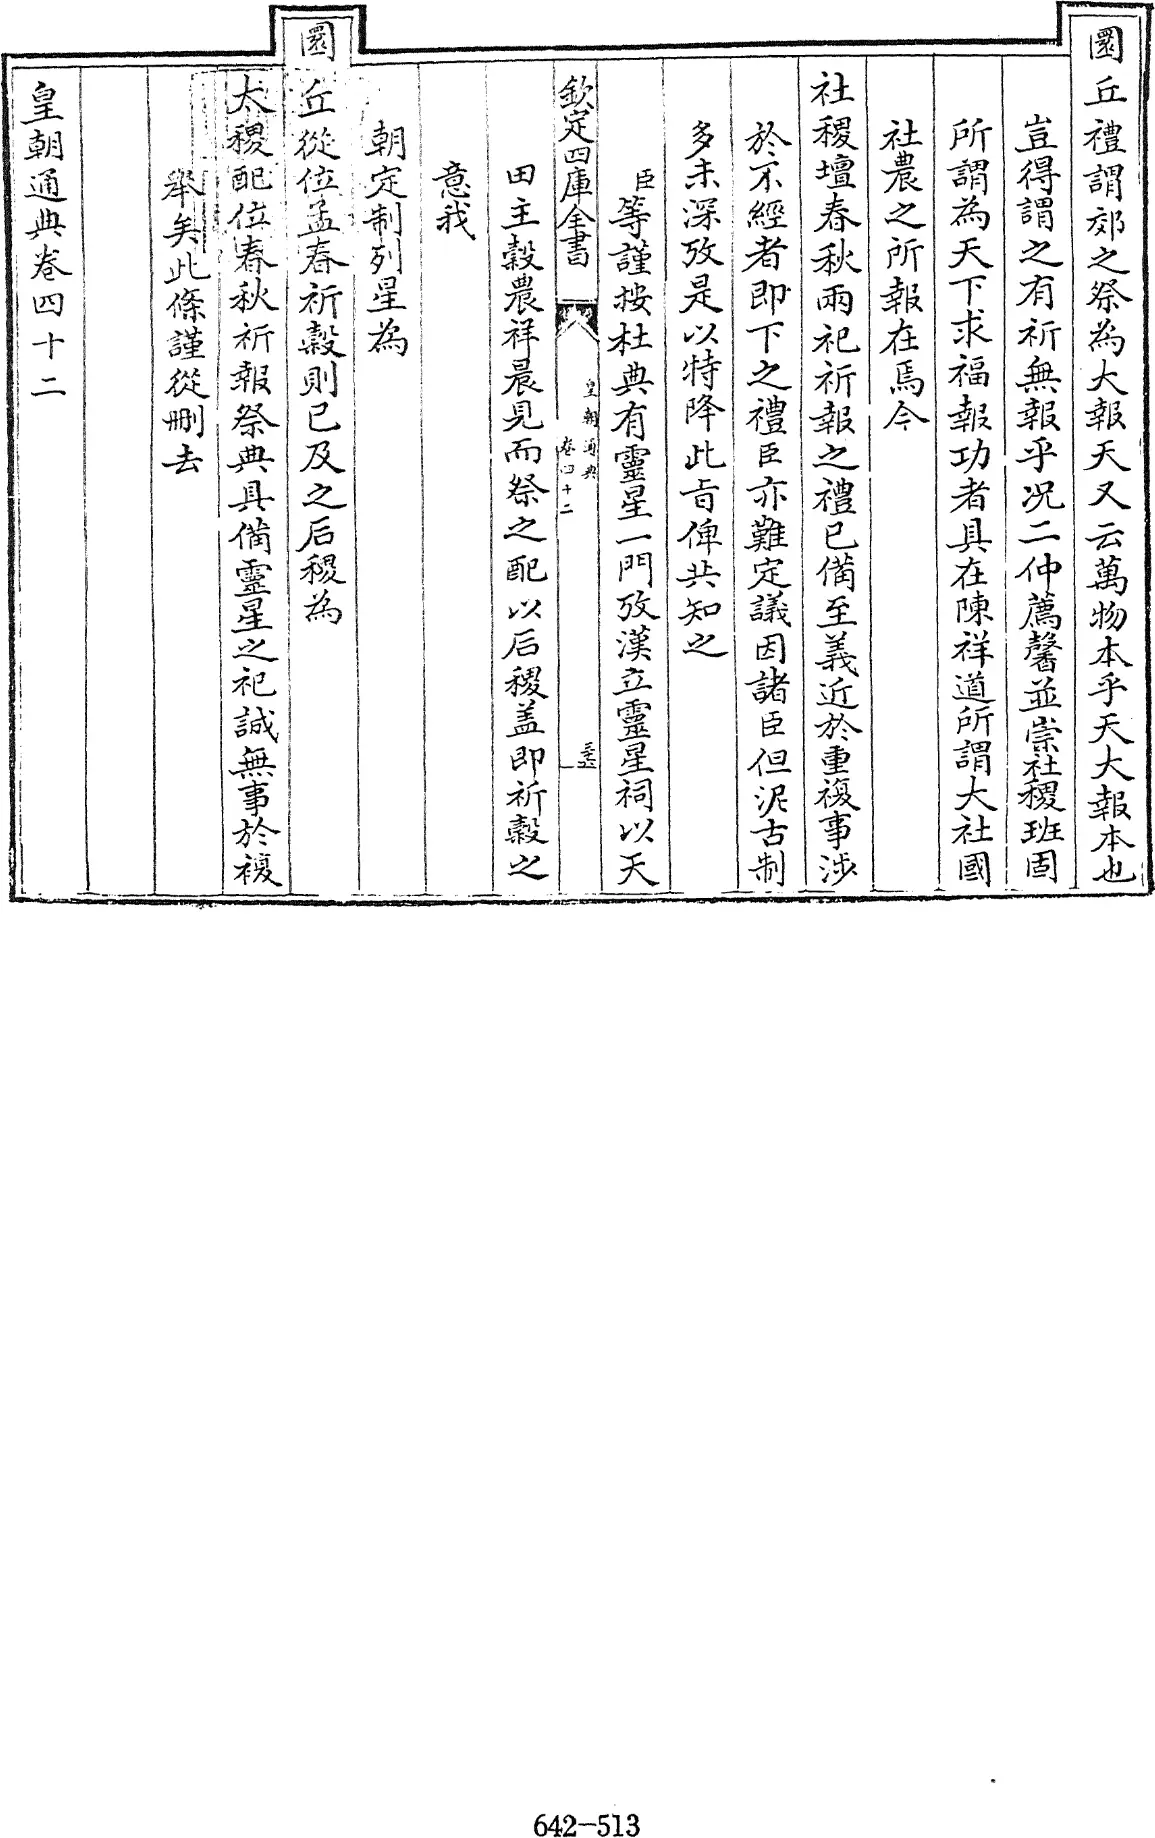 圜丘禮謂郊之祭為大報天又云萬物本乎天大報本也
豈得謂之有祈無報乎况二仲薦馨並崇社稷班固
所謂為天下求福報功者具在陳祥道所謂大社國
社農之所報在焉今
社稷壇春秋兩祀祈報之禮已備至義近於重複事涉
於不經者即下之禮臣亦難定議因諸臣但泥古制
多未深攷是以特降此旨俾共知之
臣等謹按杜典有靈星一門攷漢立靈星祠以天
欽定四庫全書
皇朝通典
卷四十二
田主穀農祥晨見而祭之配以后稷盖即祈穀之
意我
朝定制列星為
圜丘從位孟春祈穀則已及之后稷為
太稷配位春秋祈報祭典具備靈星之祀誠無事於複
舉矣此條謹從刪去
皇朝通典卷四十二
642-513